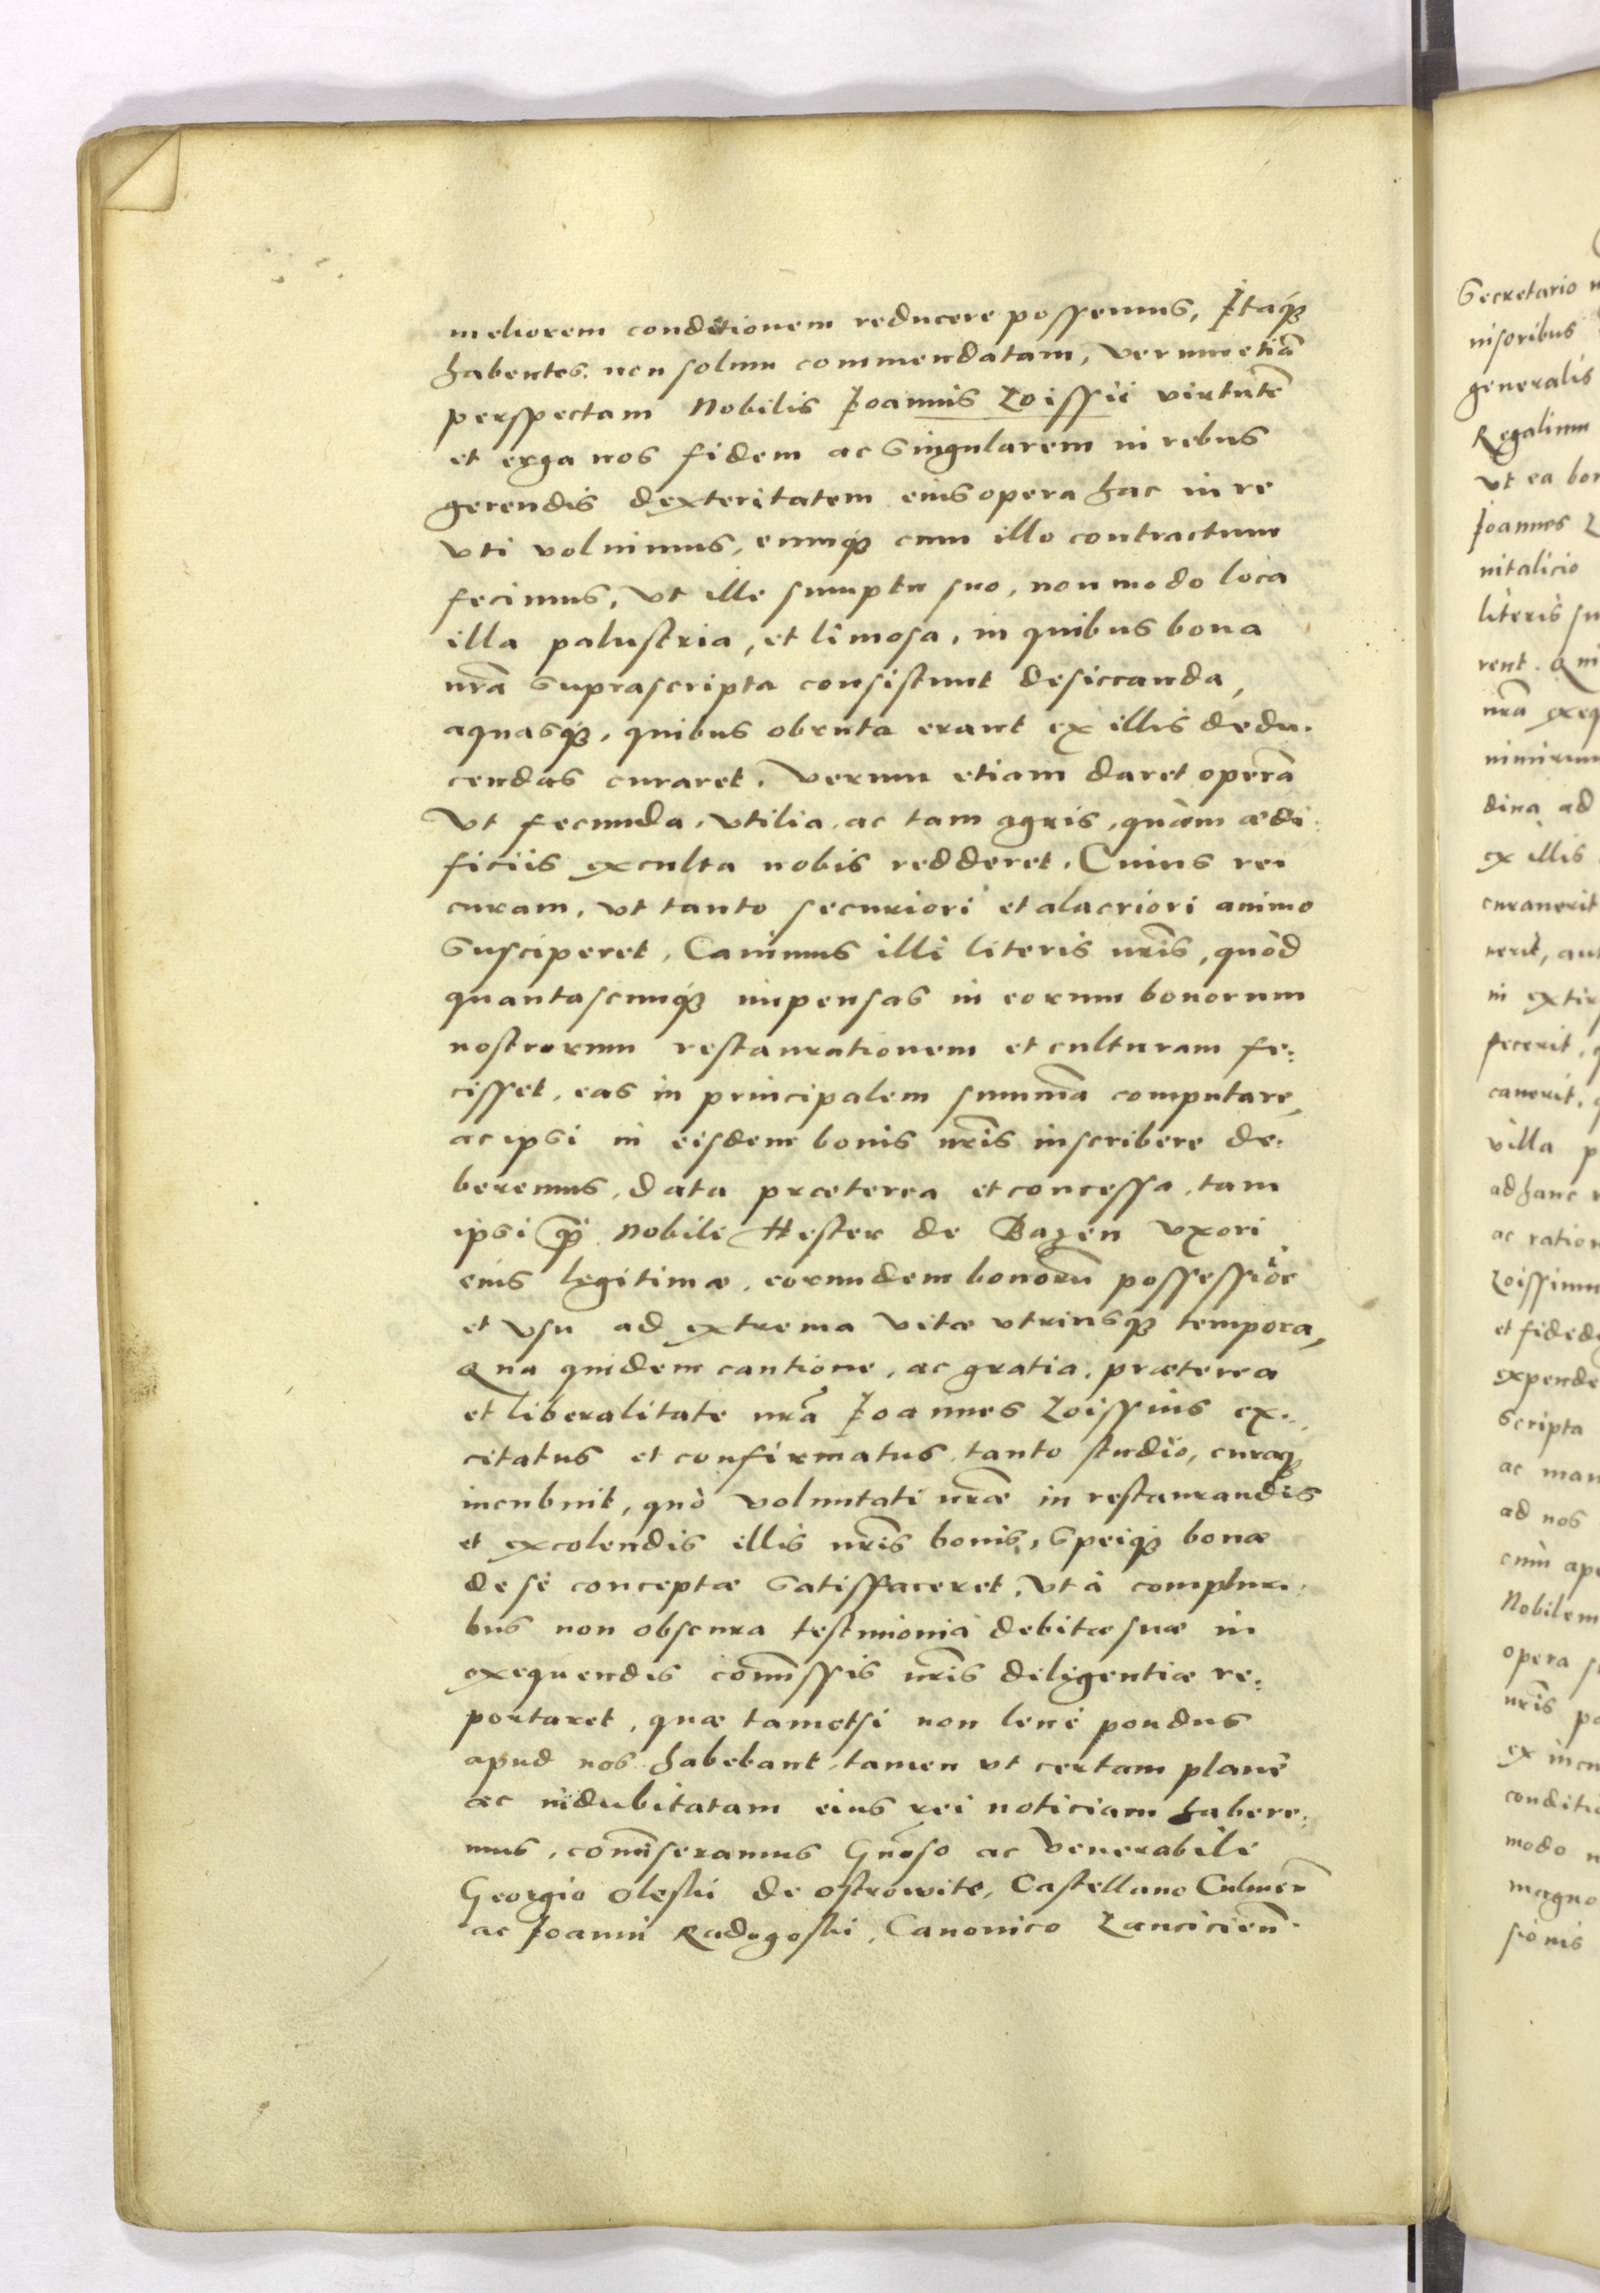 meliorem conditionem reducere possemus, Itaq́ꝫ
habentes non solum commendatam, verumetiã
perspectam Nobilis Joannis Loissii virtutẽ
et erga nos fidem ac singularem in rebus
gerendis dexteritatem eius opera hac in re
vti voluimus, eumq́ꝫ cum illo contractum
fecimus, vt ille sumptu suo, non modo loca
illa palustria, et limosa, in quibus bona
nr̃a suprascripta consistunt desiccanda,
aquasq́ꝫ, quibus obruta erant ex illis dedu.
cendas curaret. verum etiam daret operã
Vt fecunda, vtilia, ac tam agris, quàm ædi:
ficiis exculta nobis redderet. Cuius rei
curam, vt tanto securiori et alacriori animo
susciperet, Cauimus illi literis nr̃is, quòd
quantascunq́ꝫ impensas in eorum bonorum
nostrorum restaurationem et culturam fe:
cisset, eas in principalem summã computare,
ac ipsi in eisdem bonis nr̃is inscribere de:
beremus, data præterea et concessa, tam
ipsi q̃ꝫ Nobili Hester de Bazen vxori
eius legitimæ, eorundem bonorũ possessiõe
et vsu ad extrema vitæ vtriusq́ꝫ tempora,
Qua quidem cautione, ac gratia, præterea
et liberalitate nr̃a Joannes Loissius ex:
citatus et confirmatus, tanto studio, curaq́ꝫ
incubuit, quò voluntati nr̃æ in restaurandis
et excolendis illis nr̃is bonis, speiq́ꝫ bonæ
de se conceptæ satisfaceret, vt à compluri:
bus non obscura testimonia debitæ suæ in
exequendis com̃issis nr̃is diligentiæ re:
portaret, quæ tametsi non leue pondus
apud nos habebant, tamen vt certam planè
ac indubitatam eius rei noticiam habere:
mus, com̃iseramus Gñoso ac Venerabili
Georgio Oleski de Ostrowite, Castellano Culmeñ
ac Joanni Radogoski, Canonico Lancicieñ.
Secretario
generalis
Regalium
vt ea bon
Joannes L
uitalicio
literis su
rent. Qui
nr̃a exeq
dina ad
ex illis
curauerit
uerit, aut
in extir
fecerit, q
cauerit, q
villa p
ad hanc
ac ration
Loissium
et fided
expende
scripta
ac man
ad nos
cum ape
Nobilem
opera s
nr̃is po
ex incu
conditi
modo n
magno
sionis